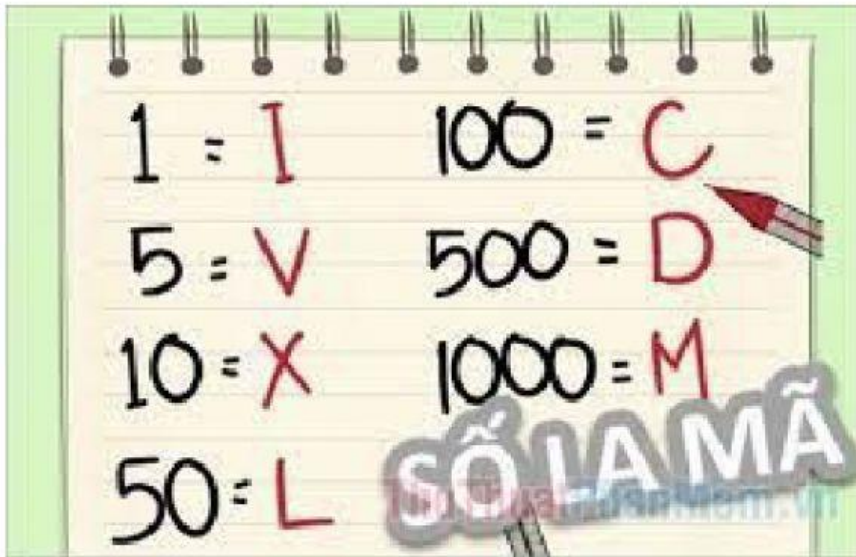 1 = I
5 = V
10 = X
50 = L
100 = C
500 = D
1000 = M
SỐ LA MÃ
ThuThuatPhanMem.vn